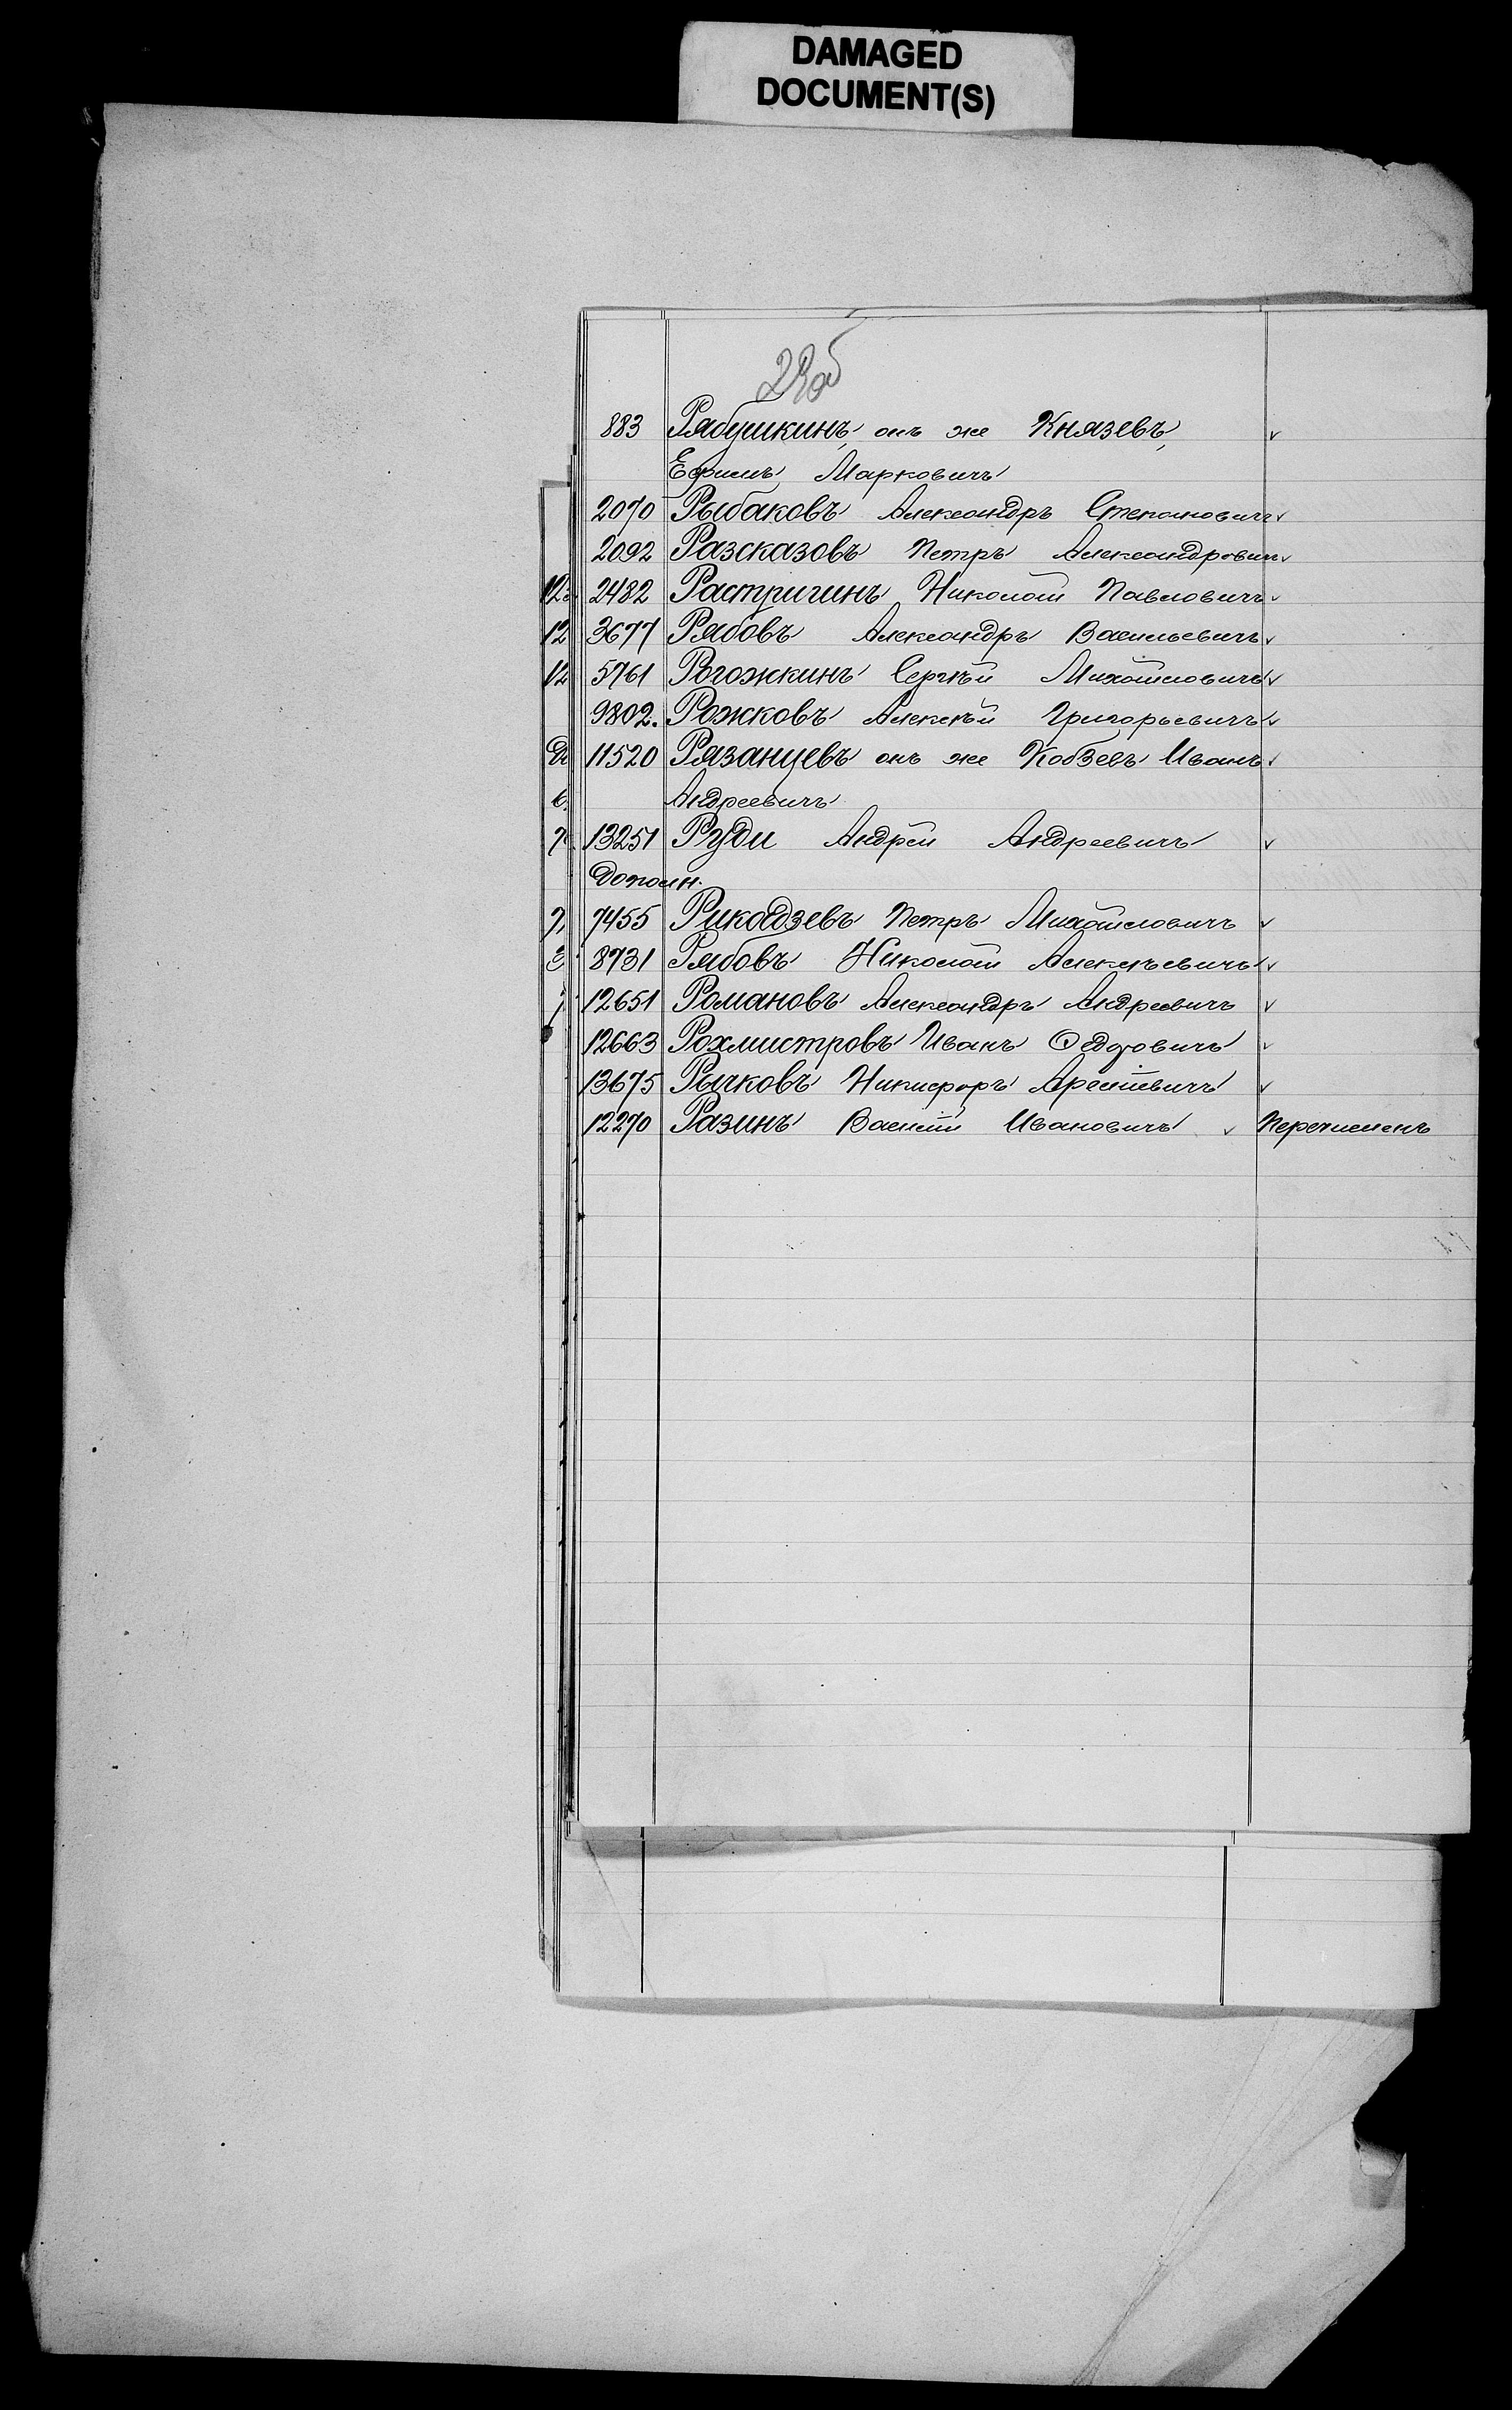 DAMAGED
DOCUMENT(S)
883 Рябушкинъ, онъ же Князевъ,
Ефимъ Марковичъ
2070 Рыбаковъ Александръ Степановичъ
2092 Разсказовъ Петръ Александровичъ
2482 Растригинъ Николай Павловичъ
12 3677 Рябовъ Александръ Васильевичъ
12 5761 Рогожкинъ Сергѣй Михайловичъ
9802. Рожковъ Алексѣй Григорьевичъ
11520 Рязанцевъ онъ же Кобзевъ Иванъ
Андреевичъ
13251 Руди Андрей Андреевичъ
Дополн.
7455 Петръ Михайловичъ
8731 Рябовъ Николай Алексѣевичъ
12651 Романовъ Александръ Андреевичъ
12663 Рохмистровъ Иванъ Ѳедоровичъ
13675 Рычковъ Никифоръ Арсеніевичъ
12270 Разинъ Василій Ивановичъ Перечисленъ